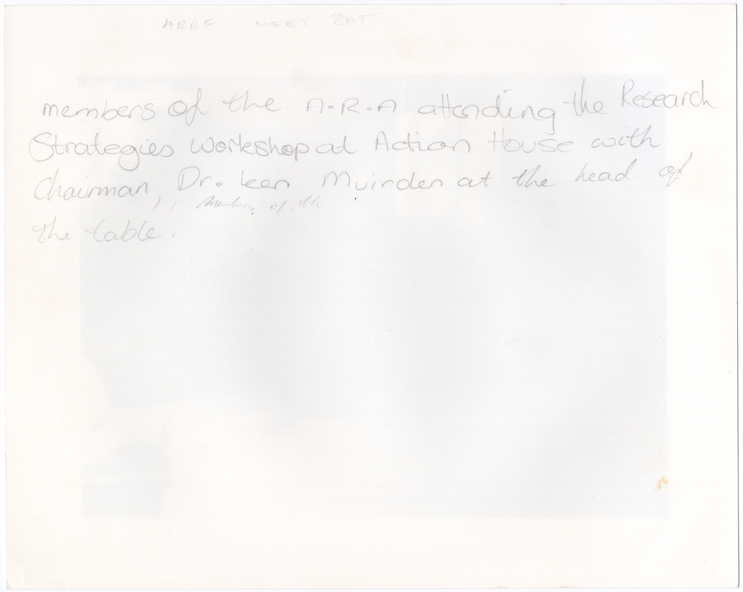 ARRF MEET SAT
members of the A.R.A attending the Research
Strategies workshop at Action House with
chairman, Dr. Ken Muirden at the head of
the table.